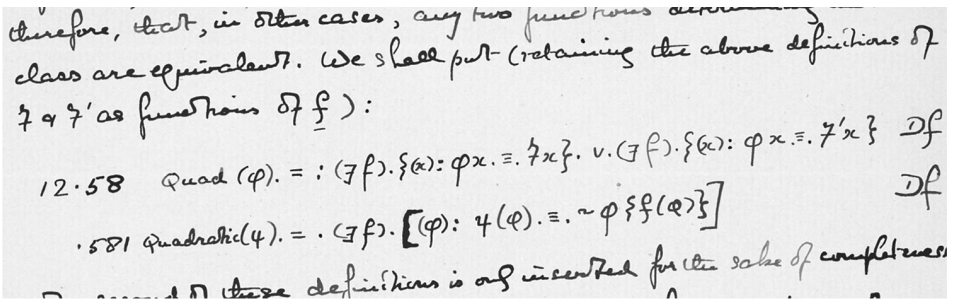 therefore, that, in other cases, any two functions determining
class are equivalent. We shall put (retaining the above definitions of
7 & 7′ as functions of f):
12·58 Quad (φ). = : (∃f).{(x): φx.≡. 7x}. v.(∃f).{(x): φx.≡. 7′x} Df
·581 Quadratic(ψ). = . (∃f).[(φ): ψ(φ).≡.~φ{f(φ)}] Df
of these definitions is only inserted for the sake of completeness